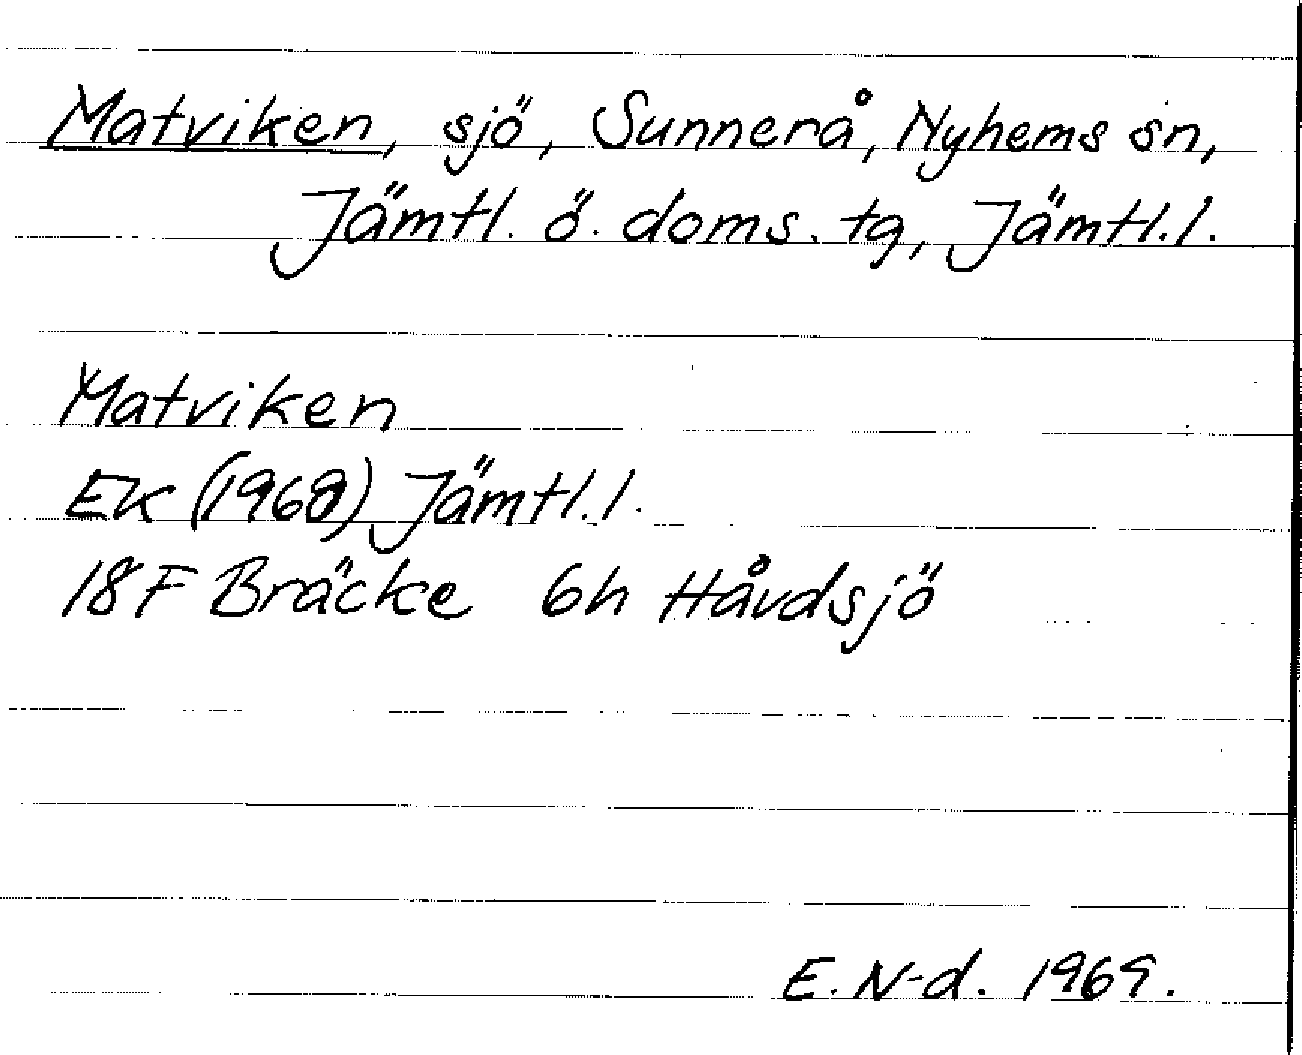 Matviken, sjö, Sunnerå, Nyhems sn,
Jämtl. ö. doms. tg, Jämtl. l.
Matviken
EK (1968) Jämtl. l.
18F Bräcke 6h Håvdsjö
E. N-d. 1969.